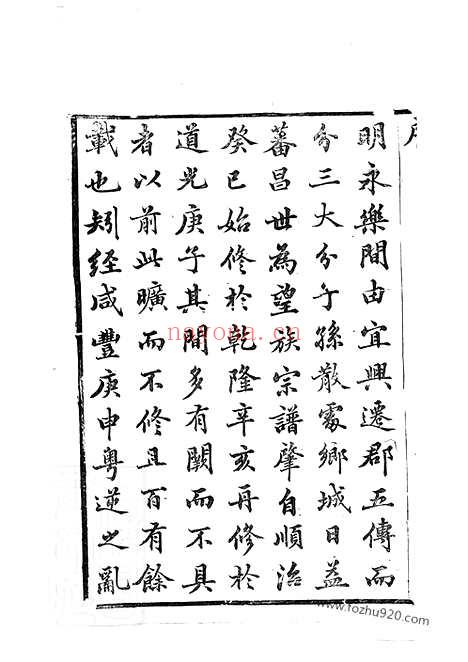 序
明永樂間由宜興遷郡五傳而
分三大分子孫散處鄉城日益
蕃昌世為望族宗譜肇自順治
癸巳始修於乾隆辛亥再修於
道光庚子其間多有闕而不具
者以前此曠而不修且百有餘
載也矧經咸豐庚申粵逆之亂
nayona.cn
www.fozhu920.com